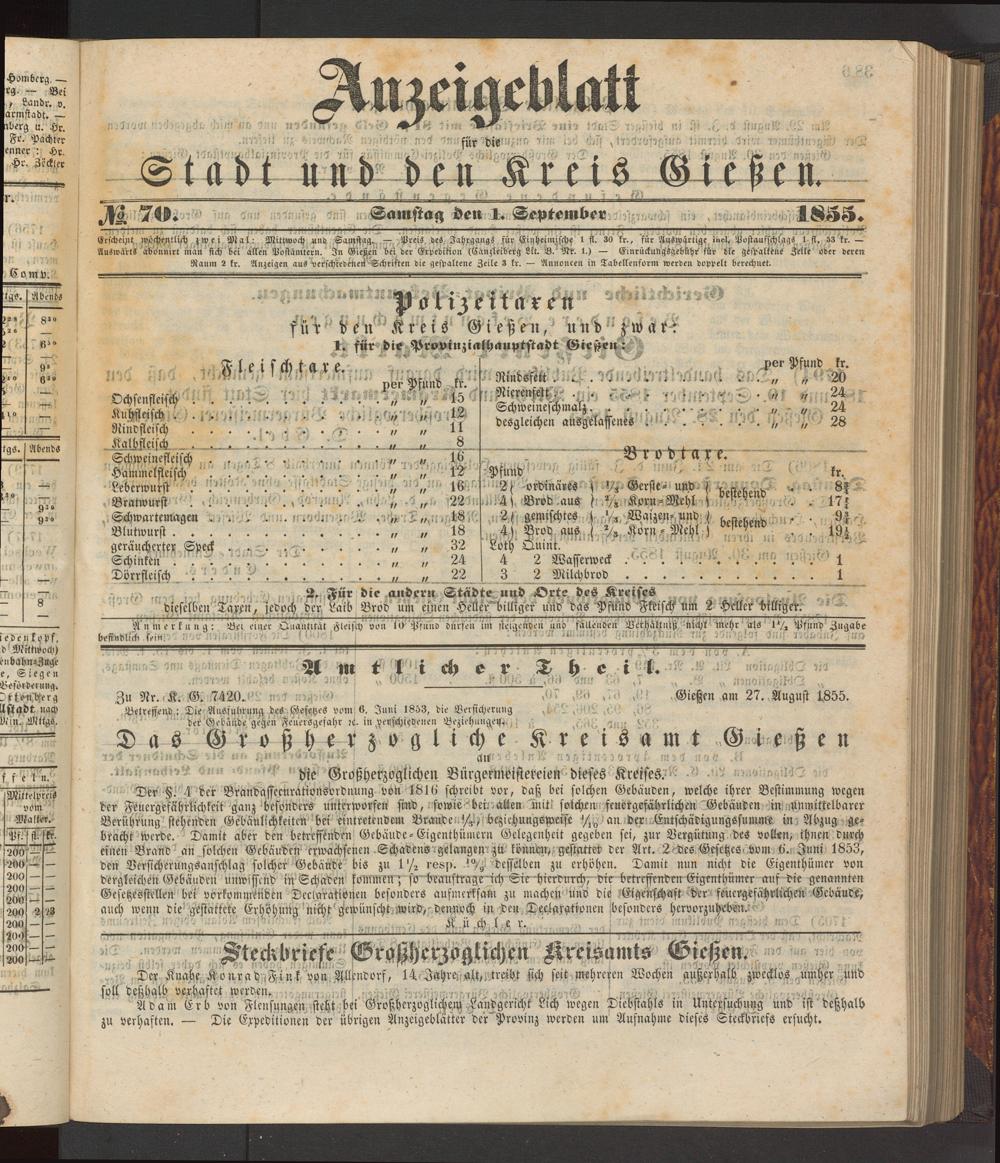 Anzeigeblatt
für die
Stadt und den Kreis Gießen.
No. 70.
Samstag den 1. September
1855.
Erscheint wöchentlich zwei Mal: Mittwoch und Samstag. — Preis des Jahrgangs für Einheimische 1 fl. 30 kr., für Auswärtige incl. Postaufschlags 1 fl. 53 kr. —
Auswärts abonnirt man sich bei allen Postämtern. In Gießen bei der Expedition (Canzleiberg Lit. B. Nr. 1.) — Einrückungsgebühr für die gespaltene Zeile oder deren
Raum 2 kr. Anzeigen aus verschiedenen Schriften die gespaltene Zeile 3 kr. — Annoncen in Tabellenform werden doppelt berechnet.
Polizeitaxen
für den Kreis Gießen, und zwar:
1. für die Provinzialhauptstadt Gießen:
Fleischtaxe.
per Pfund kr.
Ochsenfleisch . . . „ „ 15
Kuhfleisch . . . „ „ 12
Rindfleisch . . . „ „ 11
Kalbfleisch . . . „ „ 8
Schweinefleisch . . . „ „ 16
Hammelfleisch . . . „ „ 12
Leberwurst . . . „ „ 16
Bratwurst . . . „ „ 22
Schwartemagen . . . „ „ 18
Blutwurst . . . „ „ 18
geräucherter Speck . . . „ „ 32
Schinken . . . „ „ 24
Dörrfleisch . . . „ „ 22
per Pfund kr.
Rindsfett . . . „ „ 20
Nierenfett . . . „ „ 24
Schweineschmalz . . . „ „ 24
desgleichen ausgelassenes . . . „ „ 28
Brodtaxe.
Pfund kr.
2 ordinäres 1/3 Gerste- und . . 8¾
4 Brod aus 2/3 Korn-Mehl bestehend . . 17½
2 gemischtes 1/3 Waizen- und . . 9¾
4 Brod aus 2/3 Korn-Mehl bestehend . . 19½
Loth Quint.
4 2 Wasserweck . . . 1
3 2 Milchbrod . . . 1
2. Für die andern Städte und Orte des Kreises
dieselben Taxen, jedoch der Laib Brod um einen Heller billiger und das Pfund Fleisch um 2 Heller billiger.
Anmerkung: Bei einer Quantität Fleisch von 10 Pfund dürfen im steigenden und fallenden Verhältniß nicht mehr als 1½ Pfund Zugabe
befindlich sein.
Amtlicher Theil.
Zu Nr. K. G. 7420.
Gießen am 27. August 1855.
Betreffend: Die Ausführung des Gesetzes vom 6. Juni 1853, die Versicherung
der Gebäude gegen Feuersgefahr ꝛc. in verschiedenen Beziehungen.
Das Großherzogliche Kreisamt Gießen
an
die Großherzoglichen Bürgermeistereien dieses Kreises.
Der §. 4 der Brandassecurationsordnung von 1816 schreibt vor, daß bei solchen Gebäuden, welche ihrer Bestimmung wegen
der Feuergefährlichkeit ganz besonders unterworfen sind, sowie bei allen mit solchen feuergefährlichen Gebäuden in unmittelbarer
Berührung stehenden Gebäulichkeiten bei eintretendem Brande 1/3, beziehungsweise 1/10 an der Entschädigungssumme in Abzug ge-
bracht werde. Damit aber den betreffenden Gebäude-Eigenthümern Gelegenheit gegeben sei, zur Vergütung des vollen, ihnen durch
einen Brand an solchen Gebäuden erwachsenen Schadens gelangen zu können, gestattet der Art. 2 des Gesetzes vom 6. Juni 1853,
den Versicherungsanschlag solcher Gebäude bis zu 1½ resp. 10/9 desselben zu erhöhen. Damit nun nicht die Eigenthümer von
dergleichen Gebäuden unwissend in Schaden kommen; so beauftrage ich Sie hierdurch, die betreffenden Eigenthümer auf die genannten
Gesetzesstellen bei vorkommenden Declarationen besonders aufmerksam zu machen und die Eigenschaft der feuergefährlichen Gebäude,
auch wenn die gestattete Erhöhung nicht gewünscht wird, dennoch in den Declarationen besonders hervorzuheben.
Küchler.
Steckbriefe Großherzoglichen Kreisamts Gießen.
Der Knabe Konrad Fink von Allendorf, 14 Jahre alt, treibt sich seit mehreren Wochen außerhalb zwecklos umher und
soll deßhalb verhaftet werden.
Adam Erb von Flensungen steht bei Großherzoglichem Landgericht Lich wegen Diebstahls in Untersuchung und ist deßhalb
zu verhaften. — Die Expeditionen der übrigen Anzeigeblätter der Provinz werden um Aufnahme dieses Steckbriefs ersucht.